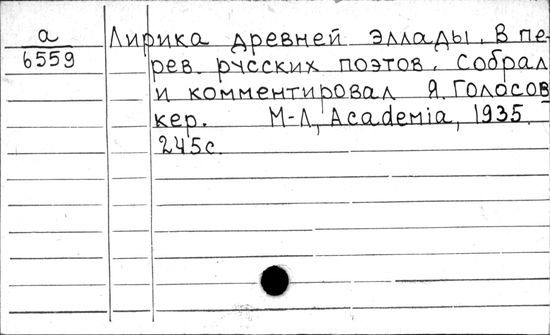 a
6559
Лирика древней эллады. В пе-
рев. русских поэтов. Собрал
и комментировал Я. Голосов
кер. М-Л, Academia, 1935.
245с.